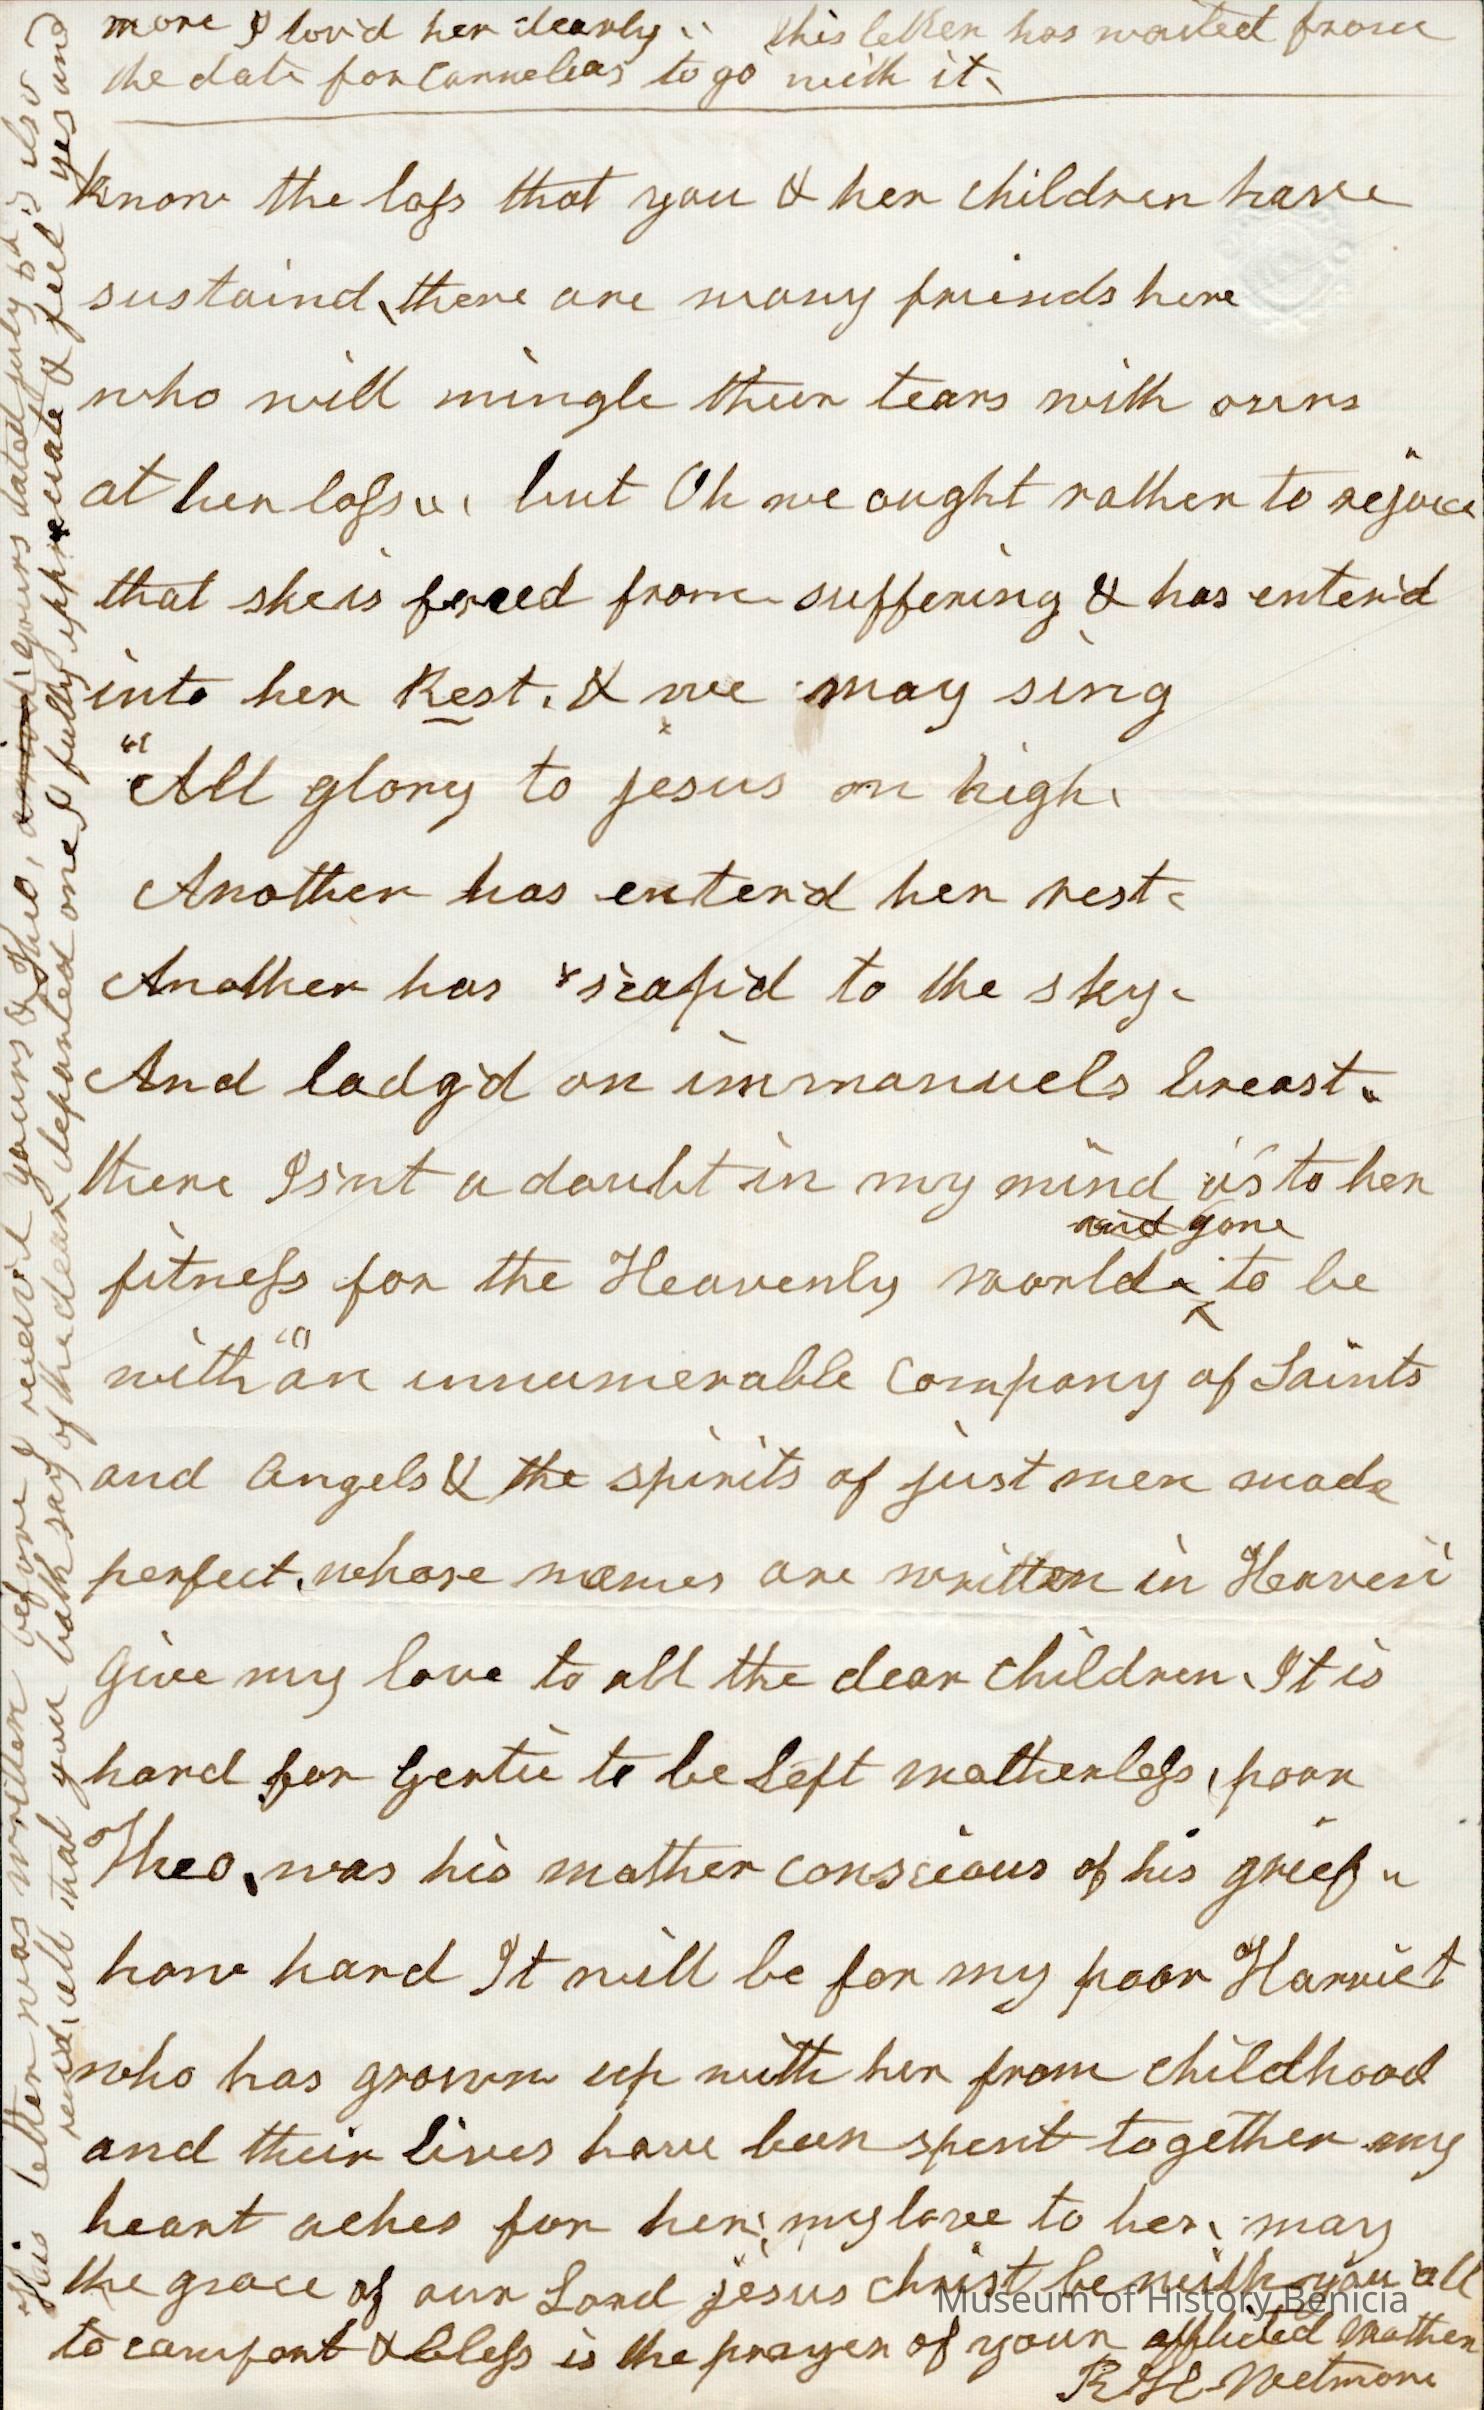 more I lov'd her dearly. this letter has waited from
the date for Cornelias to go with it.
know the loss that you & her children have
sustaind, there are many friends here
who will mingle their tears with ours
at her loss, but Oh we ought rather to rejoice
that she is freed from suffering & has enter'd
into her Rest. & we may sing
"All glory to jesus on high.
Another has enter'd her rest.
Another has 'scap'd to the sky.
And lodg'd on immanuels breast.
there Isnt a doubt in my mind as to her
and gone
fitness for the Heavenly world. to be
with "an innumerable Company of Saints
and Angels & the spirits of just men made
perfect. whose names are written in Heaven
Give my love to all the dear Children. It is
hard for Gertie to be Left motherless, poor
Theo, was his mother Conscious of his grief
how hard It will be for my poor Harriet
who has grown up with her from Childhood
and their Lives have been spent together my
heart aches for her. my love to her. may
the grace of our Lord jesus christ be with you all
to comfort & bless is the prayer of your afflicted Mother
R H Wetmore
This letter was written before I reciev'd yours & Theo, yours dated july is also
reciev'd, all that you both say of the dear departed one, I fully appreciate & feel yes and
Museum of History Benicia